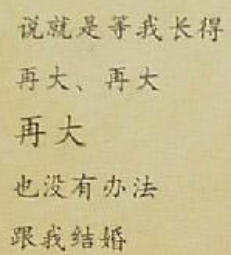 说就是等我长得
再大、再大
再大
也没有办法
跟我结婚